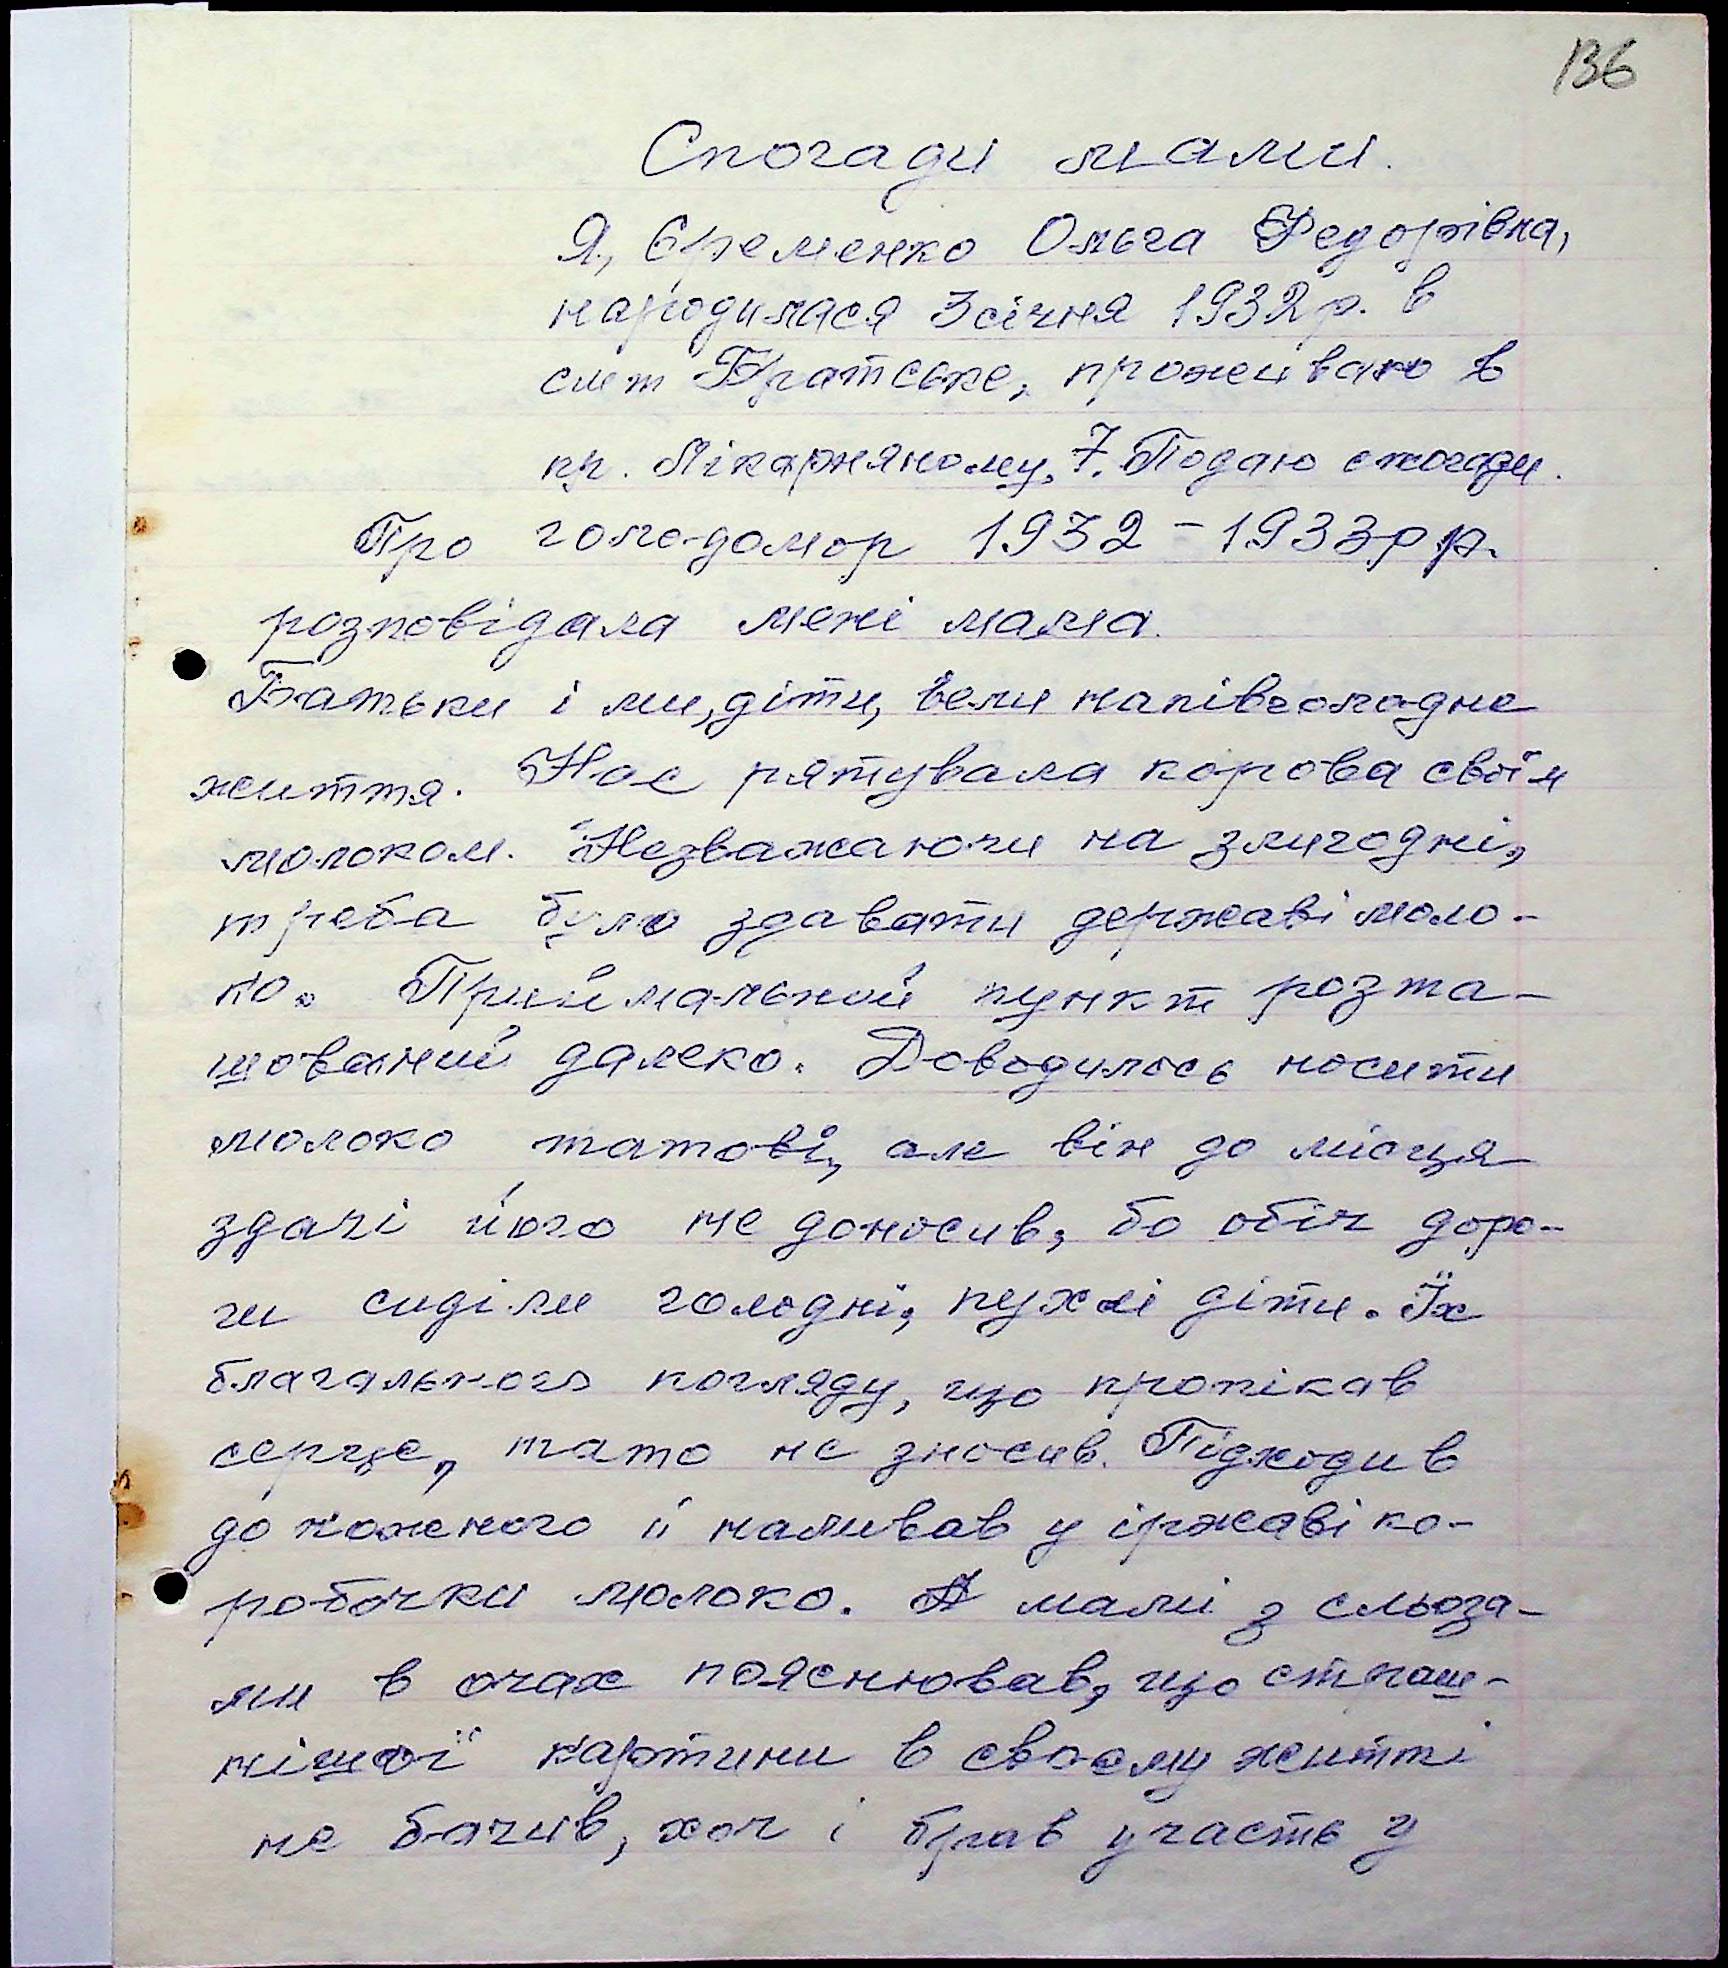 136
Спогади мами.
Я, Єременко Ольга Федорівна,
народилася 3 січня 1932 р. в
смт Братське, проживаю в
пр. Лікарняному, 7. Подаю спогади.
Про голодомор 1932 - 1933 р р.
розповідала мені мама.
Батьки і ми, діти, вели напівголодне
життя. Нас рятувала корова своїм
молоком. Незважаючи на злигодні,
треба було здавати державі моло-
ко. Приймальний пункт розта-
шований далеко. Доводилось носити
молоко татові, але він до місця
здачі його не доносив, бо обіч доро-
ги сиділи голодні, пухлі діти. Їх
благального погляду, що пропікав
серце, тато не зносив. Підходив
до кожного й наливав у іржаві ко-
робочки молоко. А мамі з сльоза-
ми в очах пояснював, що страш-
нішої картини в своєму житті
не бачив, хоч і брав участь у